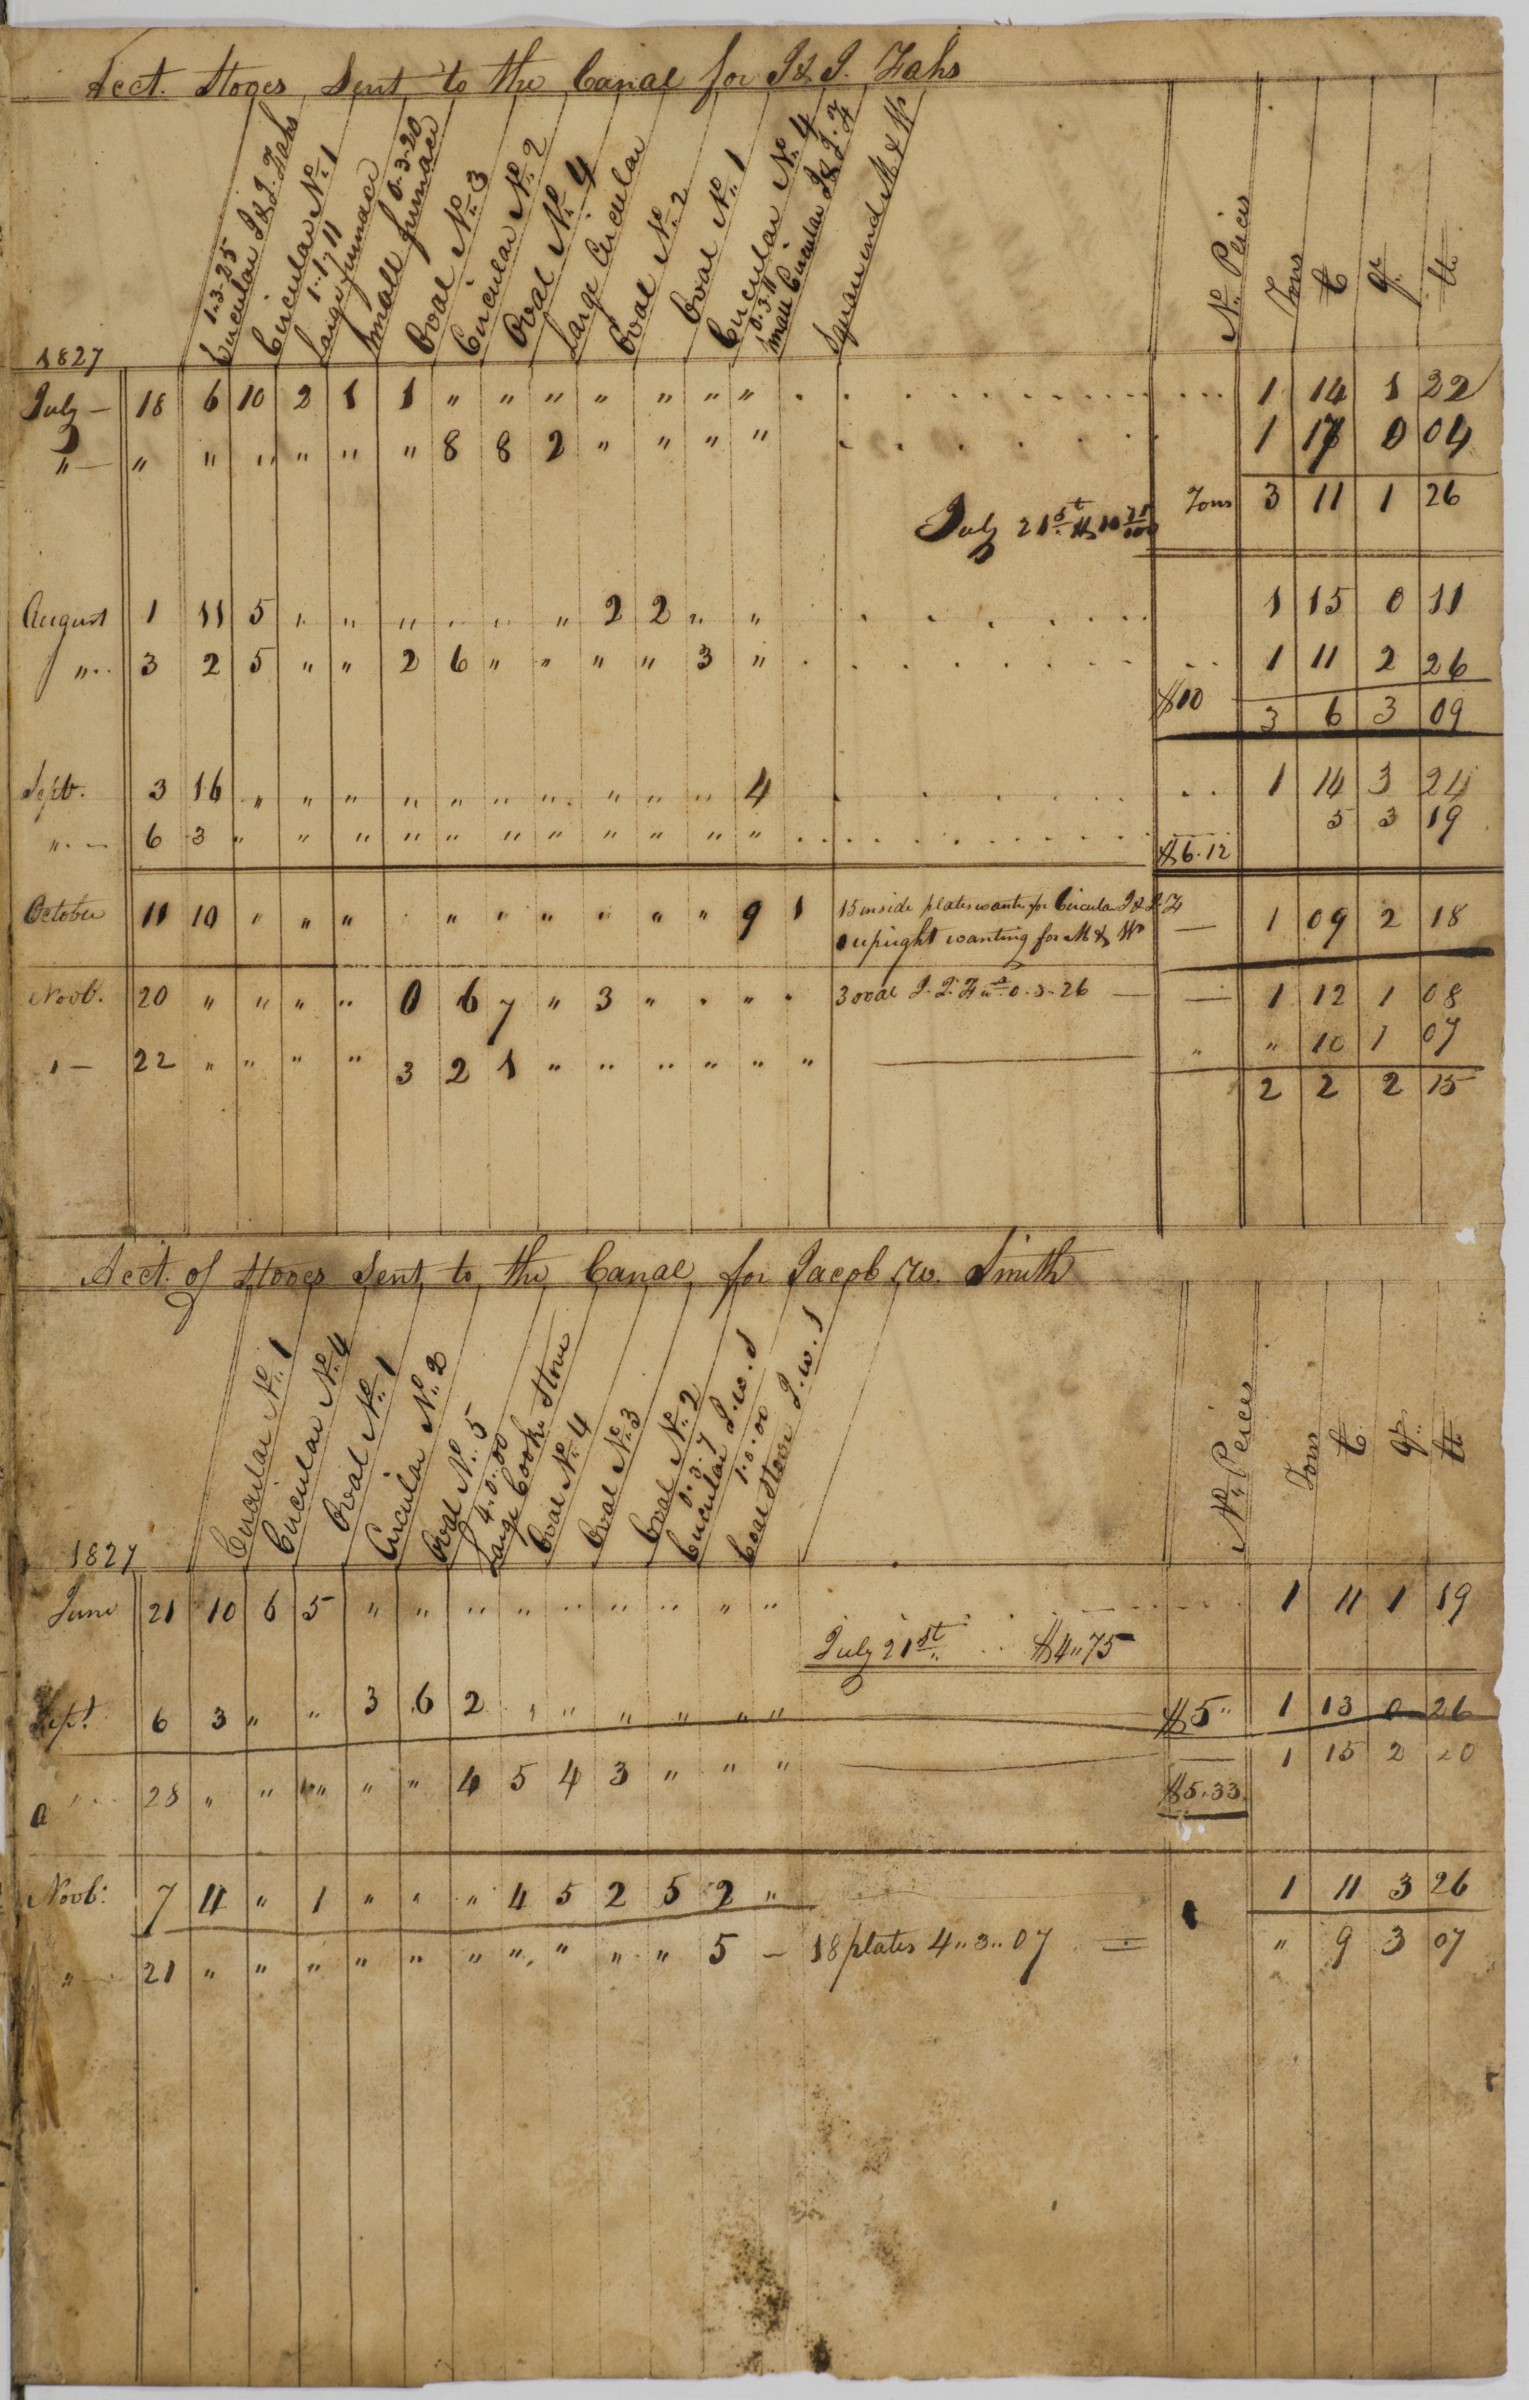 Acct. Stoves Sent to the Canal for I & I. Zahs
1..3..25
Circular I & I. Zahs
Circular No. 1
1..1..11
Large furnace
0..3..20
Small furnace
Oval No. 3
Circular No. 2
Oval No. 4
Large Circular
Oval No. 2
Oval No. 1
Circular No. 4
0..3..11
Small Circular I & I. Z
Square end M & W
No. Peices Tons C qr. lb
1827
July — 18 6 10 2 1 1 " " " " " " " 1 14 1 22
" — " " " " " " 8 8 2 " " " " 1 17 0 04
July 21st Tons 3 11 1 26
August 1 11 5 " " " " " " 2 2 " " 1 15 0 11
" 3 2 5 " " 2 6 " " " " 3 " 1 11 2 26
$10 3 6 3 09
Septr. 3 16 " " " " " " " " " " 4 1 14 3 24
" — 6 3 " " " " " " " " " " " 5 3 19
$6.12
October 11 10 " " " " " " " " " " 9 1 15 inside plates wants for Circular I & I. Z — 1 09 2 18
1 upright wanting for M & W
Novb. 20 " " " " 0 6 7 " 3 " " " " 3 oval I. I. Z 0..3..26 — 1 12 1 08
" — 22 " " " " 3 2 1 " " " " " " " " 10 1 07
2 2 2 15
Acct. of Stoves Sent to the Canal for Jacob W. Smith
Circular No. 1
Circular No. 4
Oval No. 1
Circular No. 2
Oval No. 5
4..0..00
Large Cook Stove
Oval No. 4
Oval No. 3
Oval No. 2
0..3..7
Circular J.W.S
1..0..00
Coal Stove J.W.S
No. Peices Tons C qr. lb
1827
June 21 10 6 5 " " " " " " " " " 1 11 1 19
July 21st $4"75
Sept. 6 3 " " 3 6 2 " " " " " " $5" 1 13 0 26
" 28 " " " " " 4 5 4 3 " " " 1 15 2 20
$5.33
Novb: 7 4 " 1 " " " 4 5 2 5 2 " 1 11 3 26
" 21 " " " " " " " " " " 5 — 18 plates 4"3"07 " 9 3 07